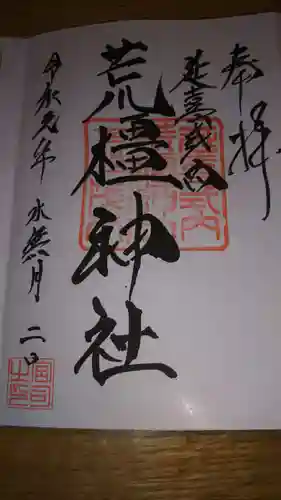 奉拝
延喜式内
荒橿神社
令和元年水無月二日